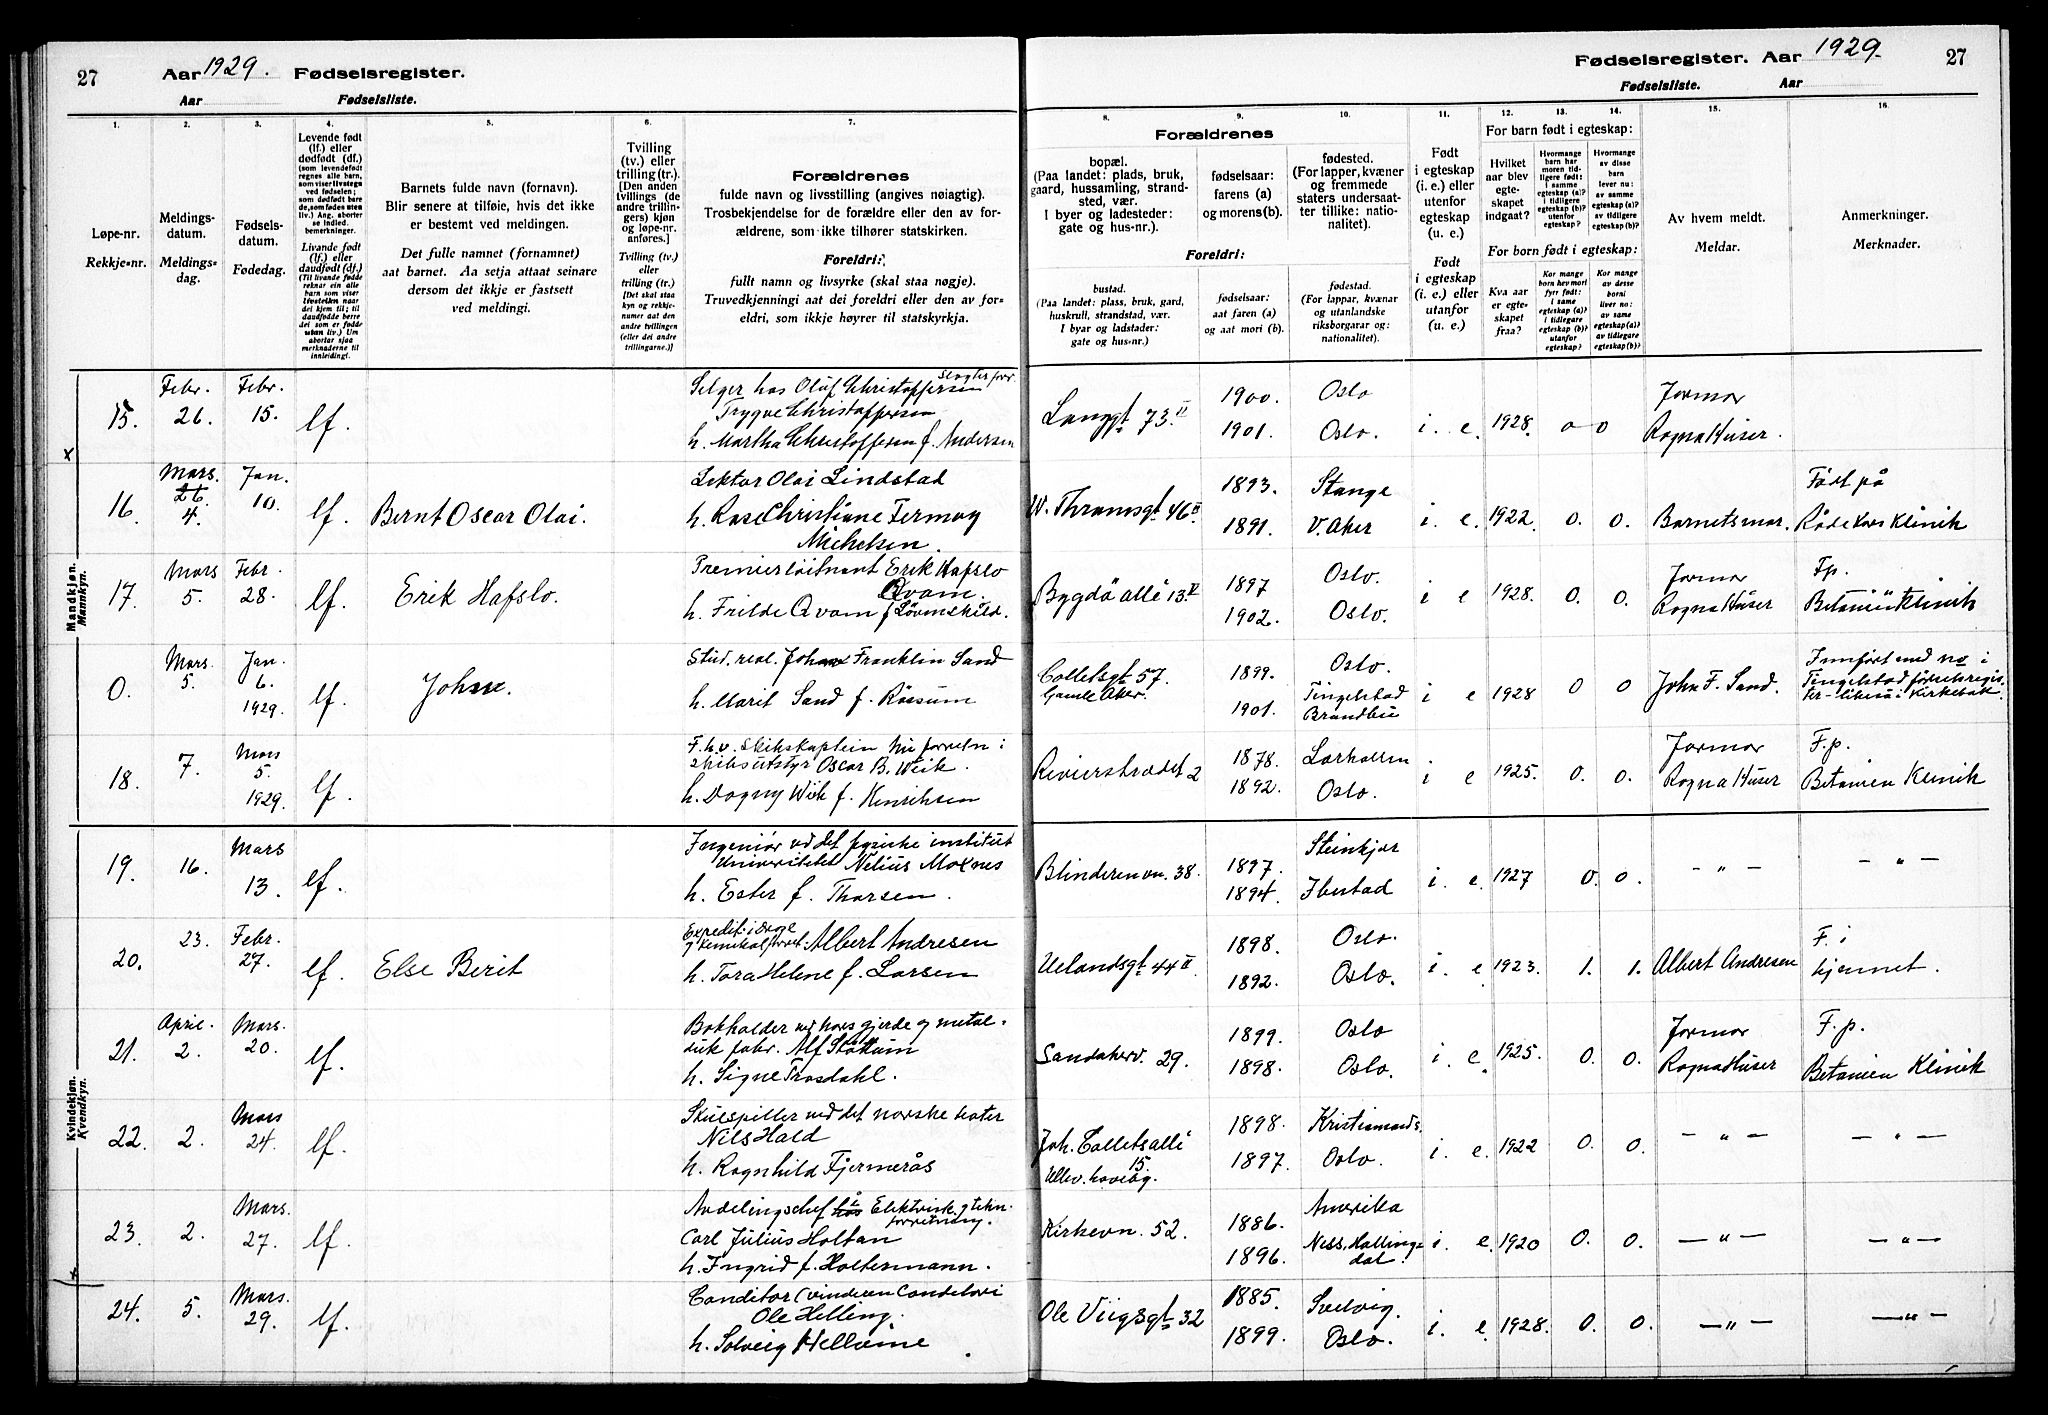 27
Aar 1929. Fødselsregister.
Aar Fødselsliste.
Fødselsregister. Aar 1929.
27
Fødselsliste. Aar
1. 2. 3. 4. 5. 6. 7.
Løpe-nr.
Rekkje-nr.
Meldings-
datum.
Meldings-
dag.
Fødsels-
datum.
Fødedag.
Levende født
(lf.) eller
dødfødt (df.)
(som levendefødt
regnes alle barn,
som viser livstegn
ved fødselen;
som dødfødt bare
de, som fødes uten
liv.) Ang. aborter
se indled.
bemerkninger.
Livande født
(lf.) eller
daudfødt (df.)
(Til livande fødde
reknar ein alle
barn som viser
livsteikn naar
dei kjem til; til
daudfødde berre
dei som er fødde
utan liv.) Um
abortar sjaa
merknaderne til
innleiding.
Barnets fulde navn (fornavn).
Blir senere at tilføie, hvis det ikke
er bestemt ved meldingen.
Det fulle namnet (fornamnet)
aat barnet. Aa setja attaat seinare
dersom det ikkje er fastsett
ved meldingi.
Tvilling
(tv.) eller
trilling (tr.).
[Den anden
tvillings (de
andre trillin-
gers) kjøn
og løpe-nr.
anføres.]
Tvilling (tv.)
eller
trilling (tr.)
[Det skal staa
kyn og rekkje-
numer aat den
andre tvillingen
(eller dei andre
trillingarne.)]
Forældrenes
fulde navn og livsstilling (angives nøiagtig).
Trosbekjendelse for de forældre eller den av for-
ældrene, som ikke tilhører statskirken.
Foreldri:
fullt namn og livsyrke (skal staa nøgje).
Truvedkjenningi aat dei foreldri eller den av for-
eldri, som ikkje høyrer til statskyrkja.
8. 9. 10. 11. 12. 13. 14. 15. 16.
Forældrenes
bopæl.
(Paa landet: plads, bruk,
gaard, hussamling, strand-
sted, vær.
I byer og ladesteder:
gate og hus-nr.).
Foreldri:
bustad.
(Paa landet: plass, bruk, gard,
huskrull, strandstad, vær.
I byar og ladstader:
gate og hus-nr.)
fødselsaar:
farens (a)
og morens (b).
fødselsaar:
aat faren (a)
og aat mori (b).
fødested.
(For lapper, kvæner
og fremmede
staters undersaat-
ter tillike: natio-
nalitet).
fødestad.
(For lappar, kvænar
og utanlandske
riksborgarar og:
nationalitet).
Født
i egteskap
(i. e.) eller
utenfor
egteskap
(u. e.)
Født
i egteskap
(i. e.) eller
utanfor
(u. e.)
For barn født i egteskap:
Hvilket
aar blev
egte-
skapet
indgaat?
Hvormange
barn har
moren tid-
ligere født:
i samme
egteskap (a)?
i tidligere
egteskap (b)?
utenfor
egteskap?
Hvormange
av disse
barn
lever nu:
av samme
egteskap (a)?
av tidligere
egteskap (b)?
For born født i egteskap:
Kva aar
er egte-
skapet
fraa?
Kor mange
born hev mori
fyrr født:
i same
egteskap (a)?
i tidlegare
egteskap (b)?
utanfor
egteskap?
Kor mange
av desse
borni
liver no:
av same
egteskap (a)?
av tidlegare
egteskap (b)?
Av hvem meldt.
Meldar.
Anmerkninger.
Merknader.
Mandkjøn.
Mannkyn.
15. Febr. 26. Febr. 15. lf. Selger hos Oluf Christoffersen Slagterforr.
Trygve Christoffersen
h. Martha Christoffersen f. Andersen
Langgt 73 II 1900. 1901. Oslo Oslo. i. e. 1928. 0 0 Jormor
Ragna Huser.
16. Mars. 26 4. Jan. 10. lf. Bernt Oscar Olai. Lektor Olai Lindstad
h. Rose Christiane Fermay
Michelsen.
W. Thranesgt 46 II 1893. 1891. Stange V. Aker i. e. 1922. 0. 0. Barnets mor. Født på
Røde Kors Klinik
17. Mars 5. Febr. 28. lf. Erik Hafslo. Premierløitnant Erik Hafslo
Qvam.
h. Frilde Qvam f Løvenskiold.
Bygdö allé 13 V 1897 1902. Oslo. Oslo. i e 1928. 0. 0. Jormor
Ragna Huser
Fp.
Betanien Klinik
0. Mars. 5. Jan. 6. 1929. lf. John. Stud. real. John Franklin Sand
h. Marit Sand f. Røisum
Colletsgt 57.
Gamle Aker.
1899. 1901. Oslo. Tingelstad
Brandbu
i e 1928 0 0 John F. Sand. Innført med no i
Tingelstad fødselsregis.
18. 7. Mars 5. 1929. lf. F. h. v. Skibskaptein nu forretn i
skibsutstyr Oscar B. Wiik.
h. Dagny Wiik f. Henrichsen
Rivierstrædet 2 1878. 1892. Larkollen Oslo. i e 1925. 0. 0. Jormor
Ragna Huser
F.p.
Betanien Klinik
Kvindekjøn.
Kvendkyn.
19. 16. Mars 13. lf. Ingeniør ved det fysiske institut
Universitetet Nelius Moxnes
h. Ester f. Thorsen.
Blinderenvn. 38. 1897. 1894. Steinkjær Ibestad i. e. 1927 0. 0. — " — — " —
20. 23. Febr. 27. lf. Else Berit Expedit. i Droge
og kemikalforret. Albert Andresen
h. Tora Helene f. Larsen
Uelandsgt 44 II 1898. 1892. Oslo. Oslo. i. e 1923. 1. 1. Albert Andresen F. i
hjemmet.
21. April. 2. Mars. 20. lf. Bokholder ved Nors gjerde og metal-
duk fabr. Alf Skottum
h. Signe Trosdahl.
Sandakerv. 29. 1899. 1898. Oslo Oslo. i. e. 1925. 0. 0. Jormor
Ragna Huser
F. p.
Betanien Klinik
22. 2. Mars 24. lf. Skuespiller ved det norske teater
Nils Hald
h. Ragnhild Fjermerås
Joh. Colletsallé
15.
Ullev. haveby.
1898. 1897. Kristiansands. Oslo. i. e. 1922 0. 0. — " — — " —
23. 2. Mars. 27. lf. Avdelingschef hos i Elektrisk og tekn.
forretning.
Carl Julius Holtan
h. Ingrid f. Holtermann.
Kirkevn. 52. 1886. 1896. Amerika Ness, Hallings-
dal.
i. e. 1920 0. 0. — " — — " —
24. 5. Mars. 29. lf. Conditor (vinderen Conditori
Ole Helling.
h. Solveig
Ole Viigsgt 32 1885. 1899. Svelvig. Oslo. i. e. 1928. 0. 0. — " — — " —